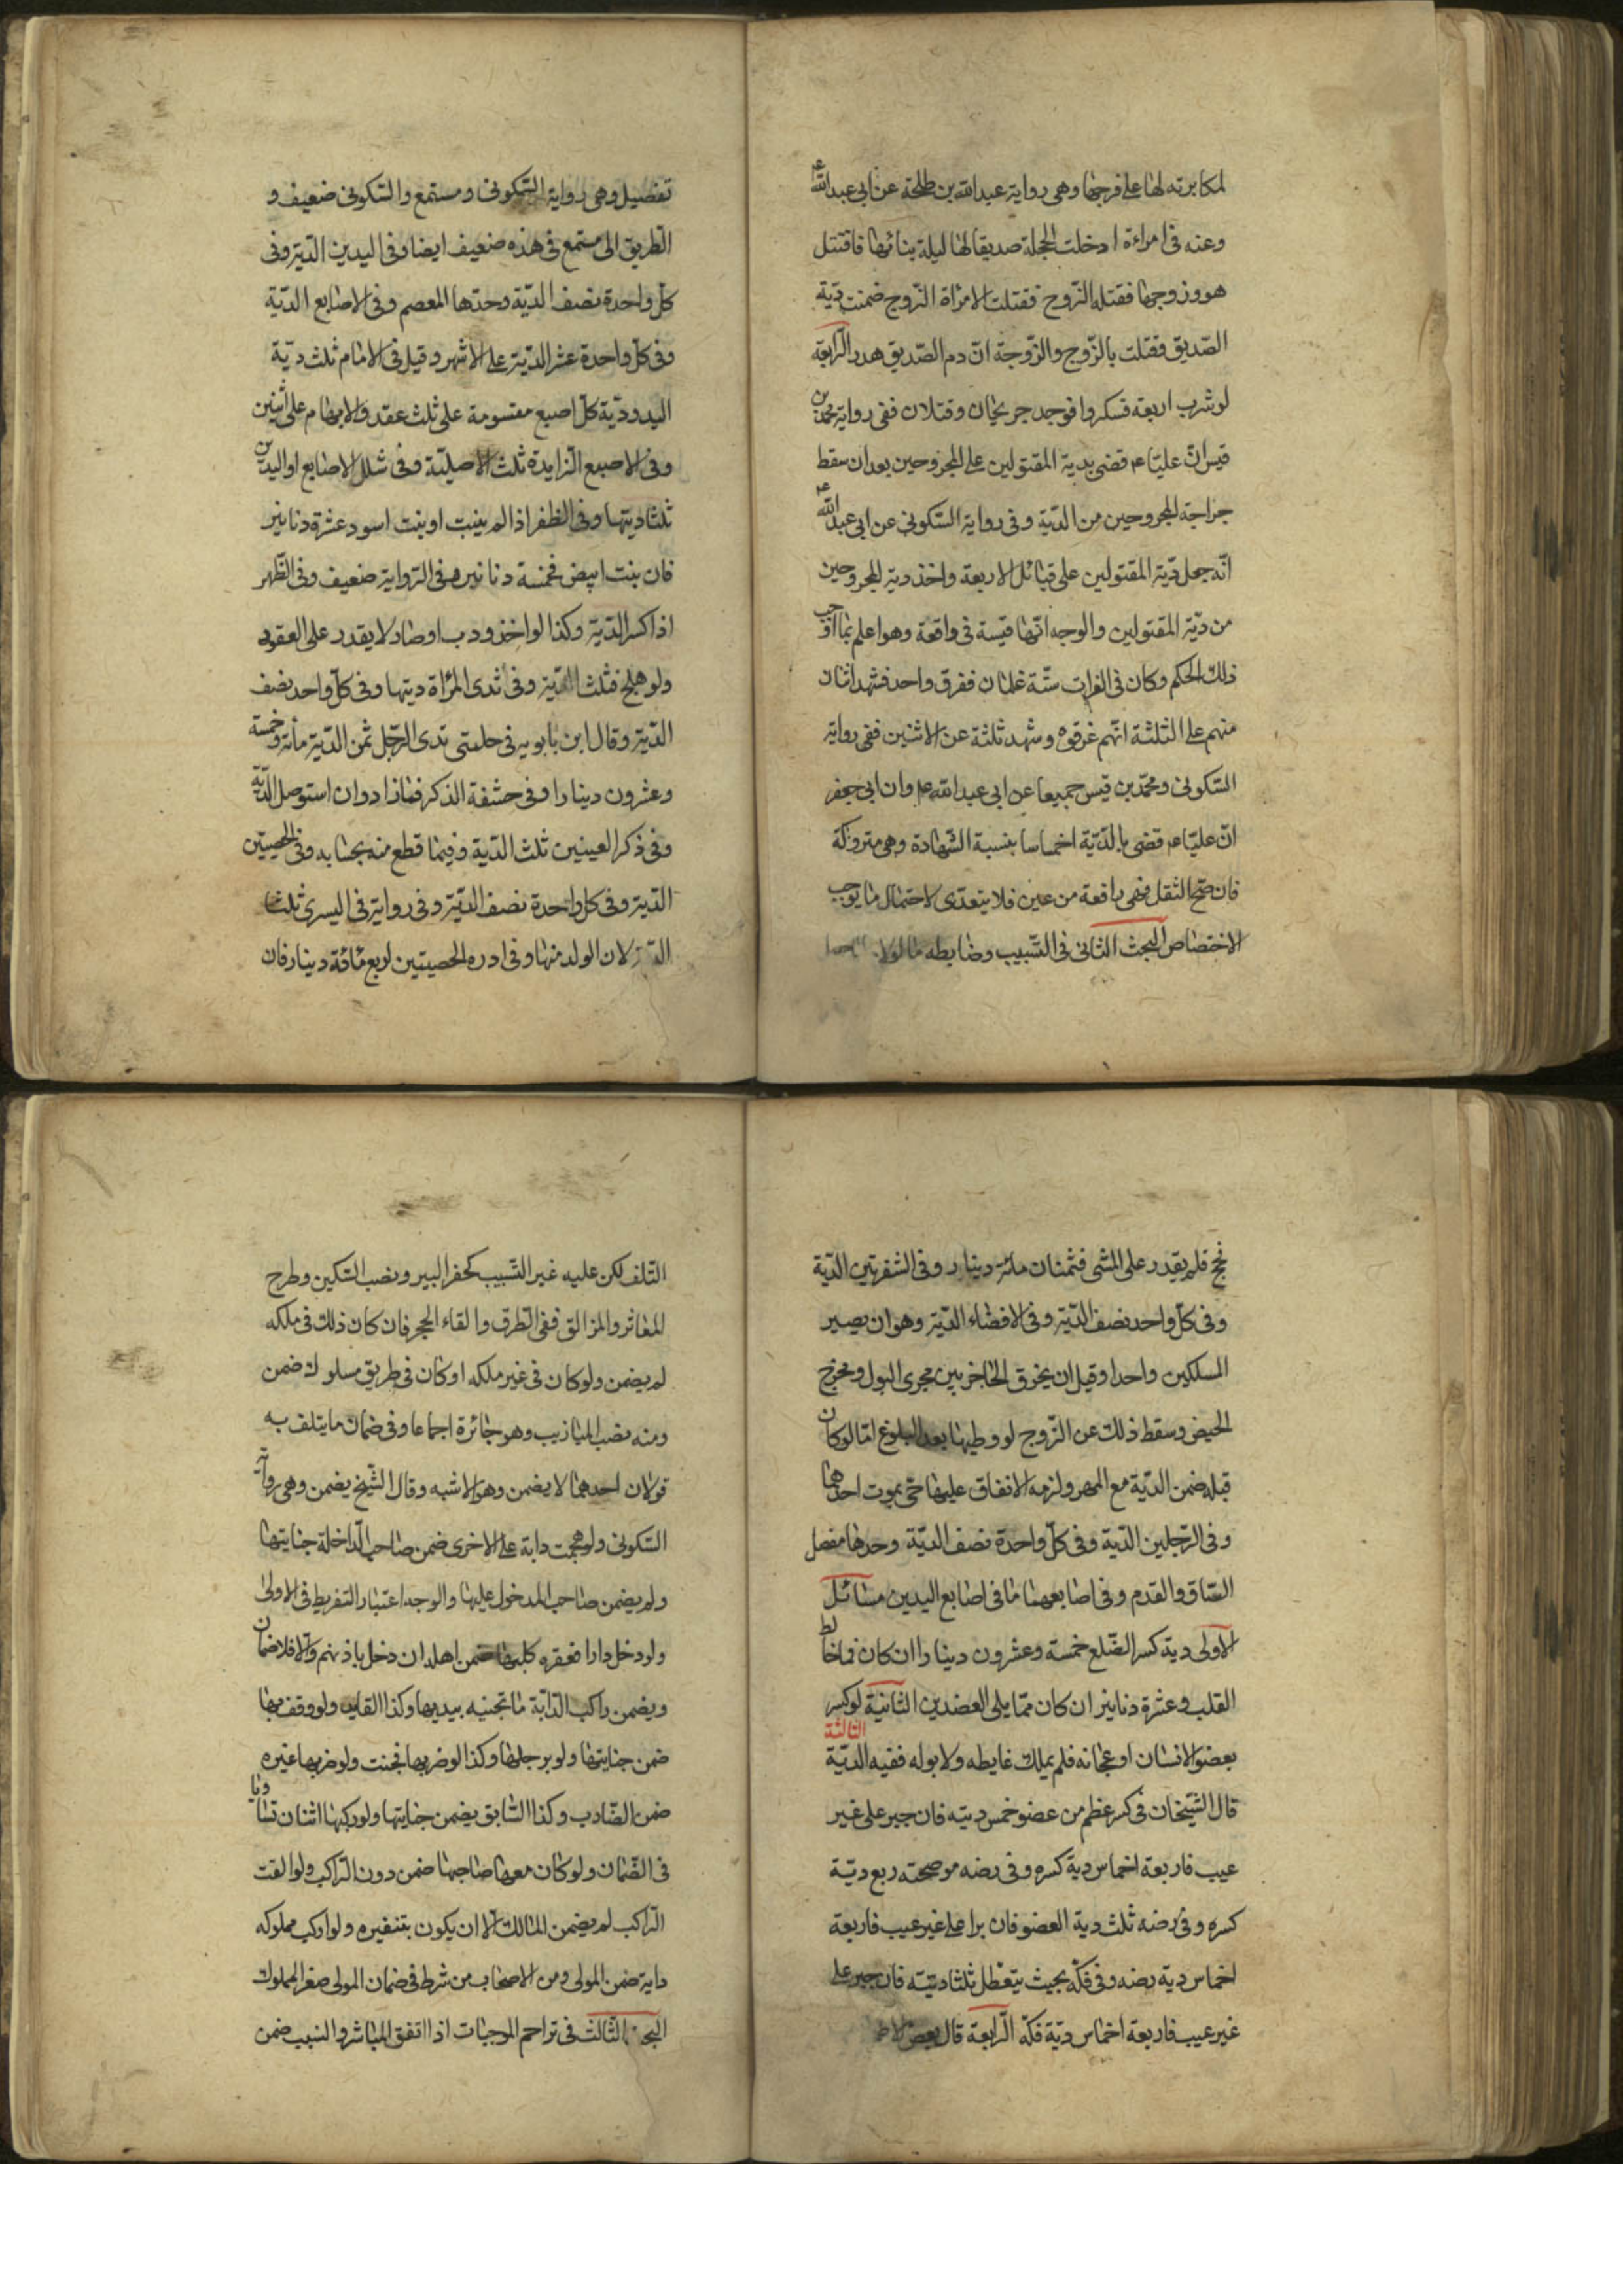 لمكابرته لها على فرجها وهى رواية عبدالله بن طلحة عن ابى عبدالله ع
وعنه فى امراءة ادخلت الحجلة صديقا لها ليلة بنائها فاقتتل
هو وزوجها فقتله الزّوج فقتلت الامراة الزّوج ضمنت ديّة
الصّديق وقتلت بالزّوج والوجه انّ دم الصّديق هدر الرّابعة
لو شرب اربعة فسكروا فوجد جريحان وقتلان ففى رواية محمّد بن
قيس انّ عليّا ع قضى بدية المقتولين على المجروحين بعد ان سقط
جراحة المجروحين من الديّة وفى رواية السّكونى عن ابى عبدالله ع
انّه جعل ديّة المقتولين على قبائل الاربعة واخذ دية المجروحين
من ديّة المقتولين والوجه انّها قيسة فى واقعة وهو اعلم بما اوجب
ذلك الحكم وكان فى الفرات ستّة غلمان ففرق واحد فشهد اثنان
منهم على الثلثة انّهم غرقوه وشهد ثلثة عن الاثنين ففى رواية
السّكونى ومحمّد بن قيس جميعا عن ابى عبدالله ع وان ابى جعفر
انّ عليّا ع قضى بالديّة اخماسا بنسبة الشّهادة وهى متروكة
فان صحّ النّقل فهى واقعة من عين فلا يتعدّى لاحتمال ما يوجب
الاختصاص البحث الثانى فى التّسبيب وضابطه ما لولاه
تفصيل وهى رواية السّكونى ومستمع والسّكونى ضعيف و
الطّريق الى مستمع فى هذه ضعيف ايضا وفى اليدين الديّة وفى
كلّ واحدة نصف الديّة وحدّها المعصم وفى الاصابع الديّة
وفى كلّ واحدة عشر الديّة على الاشهر وقيل فى الابهام ثلث ديّة
اليد وديّة كلّ اصبع مقسومة على ثلث عقد والابهام على اثنين
وفى الاصبع الزّايدة ثلث الاصليّة وفى شلل الاصابع او اليدين
ثلثا ديتها وفى الظفر اذا لم ينبت او نبت اسود عشرة دنانير
فان نبت ابيض فخمسة دنانير وفى الرّواية ضعيف وفى الظّهر
اذا كسر الديّة وكذا لو احدودب او صار لا يقدر على العقود
ولو صلح فثلث الديّة وفى ثدى المراة ديتها وفى كلّ واحد نصف
الديّة وقال ابن بابويه فى حلمتى ثدى الرّجل ثمن الديّة مأة وخمسة
وعشرون دينارا وفى حشفة الذكر فمازاد وان استوصل الديّة
وفى ذكر العينين ثلث الديّة وفيما قطع منه بحسابه وفى الخصيتين
الديّة وفى كل واحدة نصف الديّة وفى رواية فى اليسرى ثلثا
الديّة لان الولد منها وفى ادرة الخصيتين اربع مائة دينار فان
فحج فلم يقدر على المشى فثمنان مأة دينار وفى الشفرتين الديّة
وفى كلّ واحد نصف الديّة وفى الافضاء الديّة وهو ان يصير
المسلكين واحدا وقيل ان يخرق الحاجز بين مجرى البول ومخرج
الحيض وسقط ذلك عن الزّوج لو وطيها بعد البلوغ امّا لو كان
قبله ضمن الديّة مع المهر ولزمه الانفاق عليها حتى يموت احدهما
وفى الرّجلين الديّة وفى كلّ واحدة نصف الديّة وحدها مفصل
السّاق والقدم وفى اصابعهما ما فى اصابع اليدين مسائل
الاولى دية كسر الضّلع خمسة وعشرون دينارا ان كان فما خالط
القلب وعشرة دنانير ان كان ممّا يلى العضدين الثانية لو كسر
الثالثة
بعضو الانسان او عجانه فلم يملك غايطه ولا بوله ففيه الديّة
قال الشّيخان فى كسر عظم من عضو خمس ديته فان جبر على غير
عيب فاربعة اخماس دية كسره وفى رضه موضحته ربع ديّة
كسره وفى رضه ثلث دية العضو فان برا على غير عيب فاربعة
اخماس دية رضه وفى فكّه بحيث يتعطل ثلثا ديّته فان جبر على
غير عيب فاربعة اخماس ديّة فكّه الرّابعة قال بعض
التلف لكن عليه غير السّبب كحفر البير ونصب السّكين وطرح
المعاثر والمزالق ففى الطرق والقاء الحجر فان كان ذلك فى ملكه
لم يضمن ولو كان فى غير ملكه او كان فى طريق مسلوك ضمن
ومنه نصب الميازيب وهو جائزة اجماعا وفى ضمان ما يتلف به
قولان احدهما لا يضمن وهو الاشبه وقال الشّيخ يضمن وهى رواية
السّكونى ولو هجمت دابة على الاخرى ضمن صاحب الدّاخلة جنايتها
ولم يضمن صاحب المدخول عليها والوجه اعتبار التفريط فى الاولى
ولو دخل دارا فعقره كلبها ضمن اهلها ان دخل باذنهم والّا فلا ضمان
ويضمن راكب الدّابّة ما تجنيه بيديها وكذا القايد ولو وقف بها
ضمن جنايتها ولو برجلها وكذا لو ضربها فجنت ولو ضربها غيره
ضمن الضّارب وكذا السّابق يضمن جنايتها ولو ركبها اثنان تساويا
فى الضّمان ولو كان معها صاحبها ضمن دون الرّاكب ولو القت
الرّاكب لم يضمن المالك الّا ان يكون بتنفيره ولو اركب مملوكه
دابة ضمن المولى ومن الاصحاب من شرط فى ضمان المولى صغر المملوك
البحث الثالث فى تزاحم الموجبات اذا اتفق المباشر والسبب ضمن